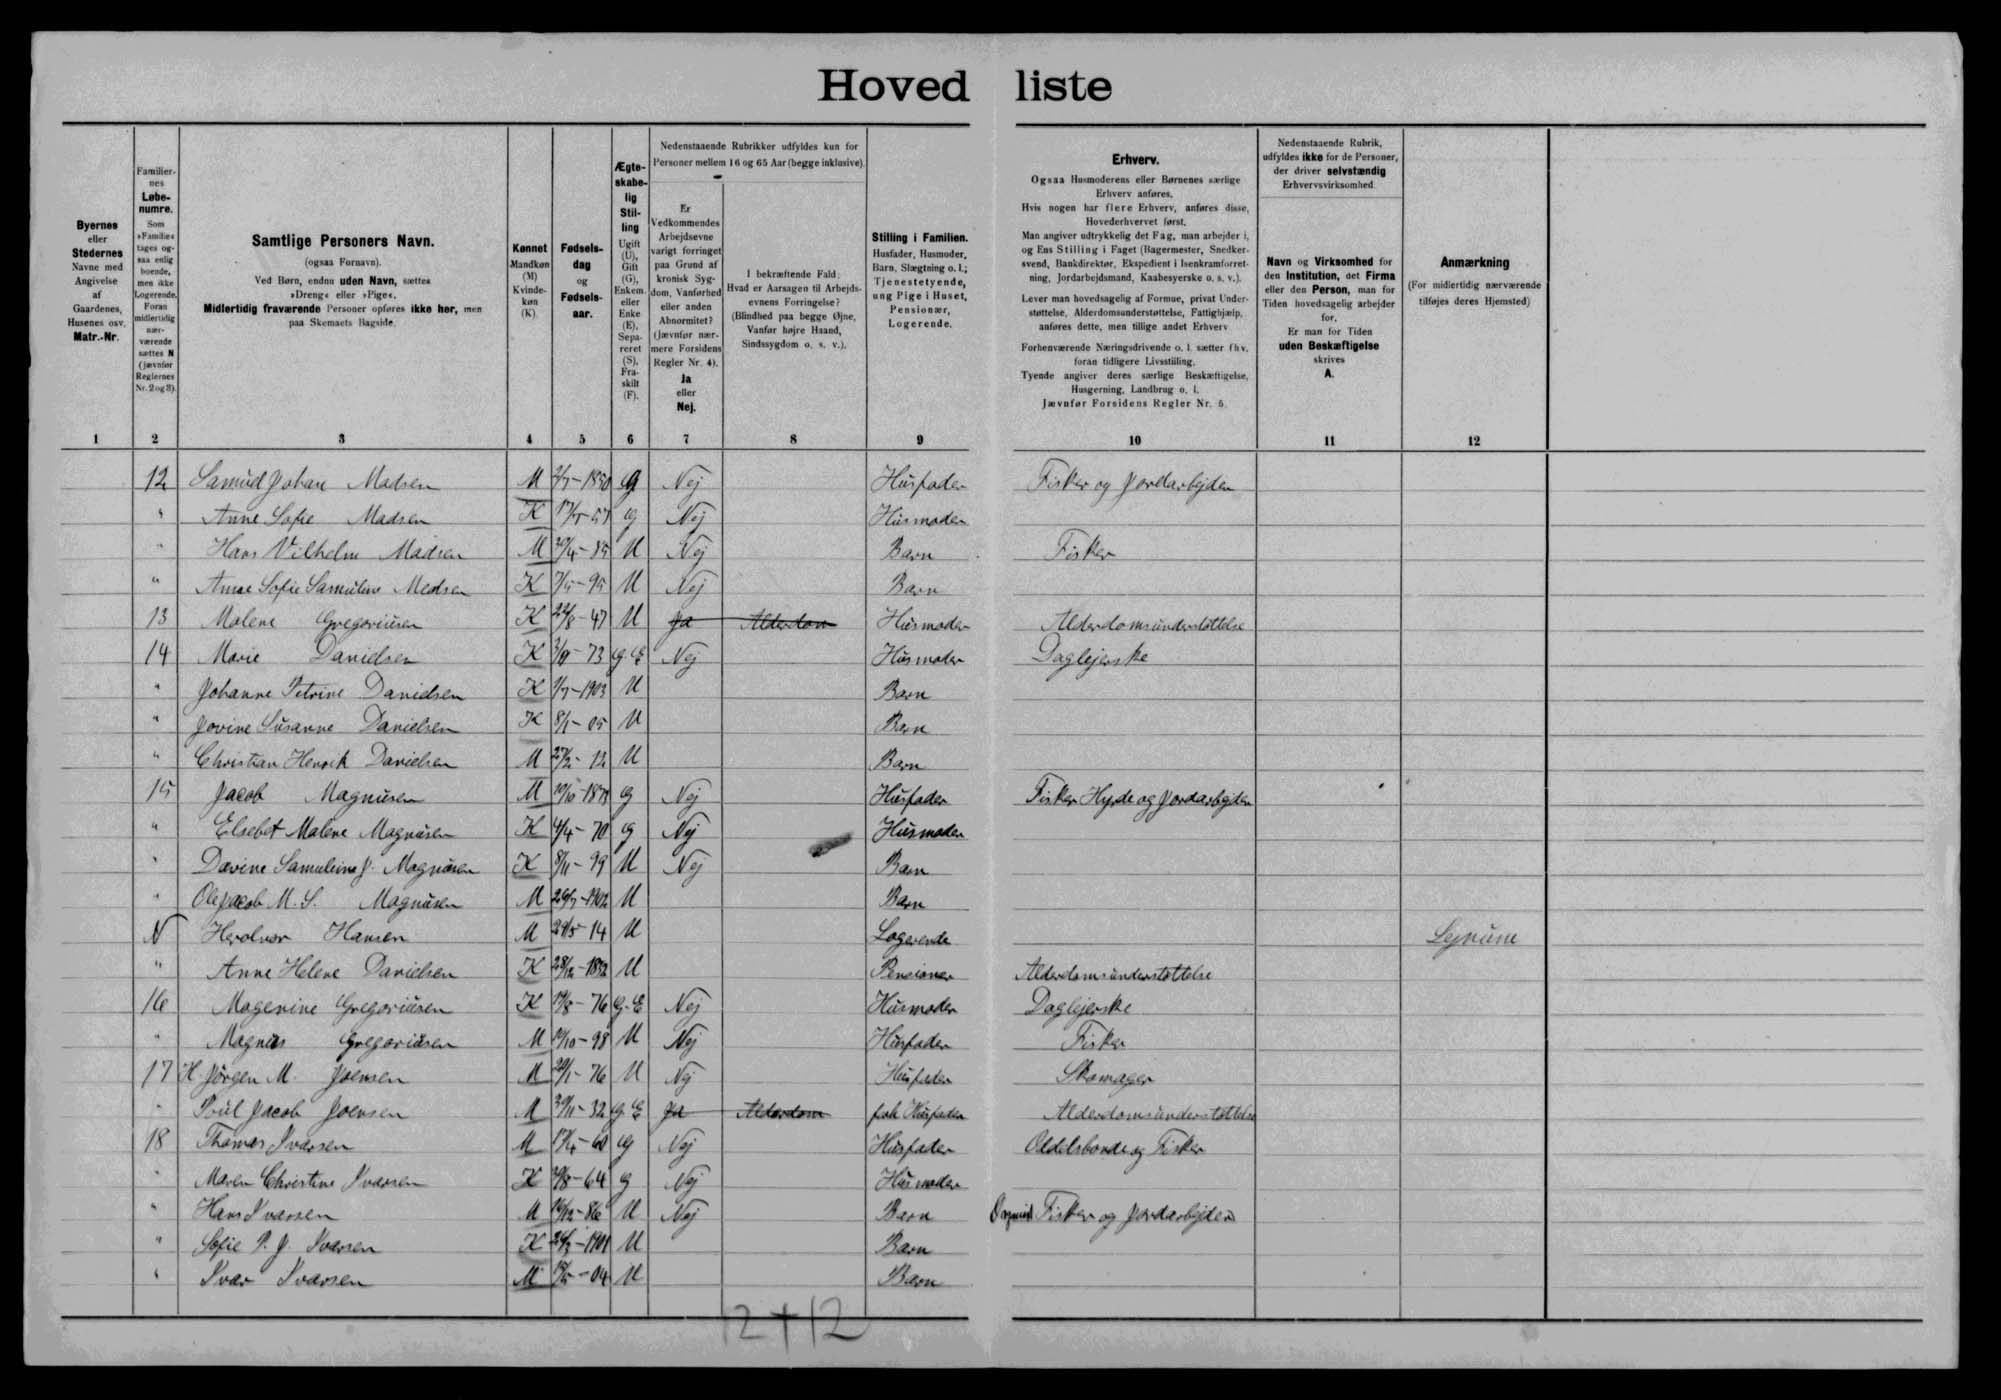 Hovedliste
Byernes
eller
Stedernes
Navne med
Angivelse
af
Gaardenes,
Husenes osv.
Matr.-Nr.
Familier-
nes
Løbe-
numre.
Som
»Familie«
tages og-
saa enlig
boende,
men ikke
Logerende.
Foran
midlertidig
nær-
værende
sættes N
(jævnfør
Reglernes
Nr. 2 og 3).
Samtlige Personers Navn.
(ogsaa Fornavn).
Ved Børn, endnu uden Navn, sættes
»Dreng« eller »Pige«.
Midlertidig fraværende Personer opføres ikke her, men
paa Skemaets Bagside.
Kønnet
Mandkøn
(M)
Kvinde-
køn
(K)
Fødsels-
dag
og
Fødsels-
aar.
Ægte-
skabe-
lig
Stil-
ling
Ugift
(U),
Gift
(G),
Enkem.
eller
Enke
(E),
Sepa-
reret
(S),
Fra-
skilt
(F).
Nedenstaaende Rubrikker udfyldes kun for
Personer mellem 16 og 65 Aar (begge inklusive).
Er
Vedkommendes
Arbejdsevne
varigt forringet
paa Grund af
kronisk Syg-
dom, Vanførhed
eller anden
Abnormitet?
(Jævnfør nær-
mere Forsidens
Regler Nr. 4).
Ja
eller
Nej.
I bekræftende Fald:
Hvad er Aarsagen til Arbejds-
evnens Forringelse?
(Blindhed paa begge Øjne,
Vanfør højre Haand,
Sindssygdom o. s. v.).
Stilling i Familien.
Husfader, Husmoder,
Barn, Slægtning o. l.;
Tjenestetyende,
ung Pige i Huset,
Pensionær,
Logerende.
Erhverv.
Ogsaa Husmoderens eller Børnenes særlige
Erhverv anføres.
Hvis nogen har flere Erhverv, anføres disse,
Hovederhvervet først.
Man angiver udtrykkelig det Fag, man arbejder i,
og Ens Stilling i Faget (Bagermester, Snedker-
svend, Bankdirektør, Ekspedient i Isenkramforret-
ning, Jordarbejdsmand, Kaabesyerske o. s. v.).
Lever man hovedsagelig af Formue, privat Under-
støttelse, Alderdomsunderstøttelse, Fattighjælp,
anføres dette, men tillige andet Erhverv
Forhenværende Næringsdrivende o. l. sætter fhv.
foran tidligere Livsstilling.
Tyende angiver deres særlige Beskæftigelse,
Husgerning, Landbrug o. l.
Jævnfør Forsidens Regler Nr. 5.
Nedenstaaende Rubrik,
udfyldes ikke for de Personer,
der driver selvstændig
Erhvervsvirksomhed
Navn og Virksomhed for
den Institution, det Firma
eller den Person, man for
Tiden hovedsagelig arbejder
for.
Er man for Tiden
uden Beskæftigelse
skrives
A.
Anmærkning
(For midlertidig nærværende
tilføjes deres Hjemsted)
1 2 3 4 5 6 7 8 9 10 11 12
12 Samuel Johan Madsen M 1850 G Nej Husfader Fisker og Jordarbejder
" Anne Sofie Madsen K G Nej Husmoder
" Hans Vilhelm Madsen M U Nej Barn Fisker
" Anne Sofie Samuline Madsen K 7/5-95 U Nej Barn
13 Malene Gregoriusen K 22/8-47 U Ja Alderdom Husmoder Alderdomsunderstøttelse
14 Marie Danielsen K G. E Nej Husmoder Daglejerske
" Johanne Petrine Danielsen K 1903 U Barn
" Jovine Susanne Danielsen K 8/1-05 U Barn
" Christian Henrik Danielsen M 27/2-12 U Barn
15 Jacob Magnusen M G Nej Husfader Fisker Hyrde og Jordarbejder
" Elsebet Malene Magnusen K 4/4-70 G Nej Husmoder
" Davine Samueline J. Magnusen K 8/11-99 U Nej Barn
" Ole Jacob M. S. Magnusen M 1902 U Barn
N Herolvor Hansen M 14 U Logerende Lejnum
" Anne Helene Danielsen K 28/12-1832 U Pensioner Alderdomsunderstøttelse
16 Magenine Gregoriusen K 76 G. E Nej Husmoder Daglejerske
" Magnus Gregoriusen M 98 U Nej Husfader Fisker
17 H Jørgen M. Joensen M 76 U Nej Husfader Skomager
" Poul Jacob Joensen M 30/11-32 G E Ja Alderdom Husfader Alderdomsunderstøttelse
18 Thomas Ivarsen M 17/4-60 G Nej Husfader Oddelsbonde og Fisker
" Maren Christine Ivarsen K 64 G Nej Husmoder
" Hans Ivarsen M 16/12-86 U Nej Barn Fisker og Jordarbejder
" Sofie P. J. Ivarsen K 1901 U Barn
" Ivar Ivarsen M 04 U Barn
12+12